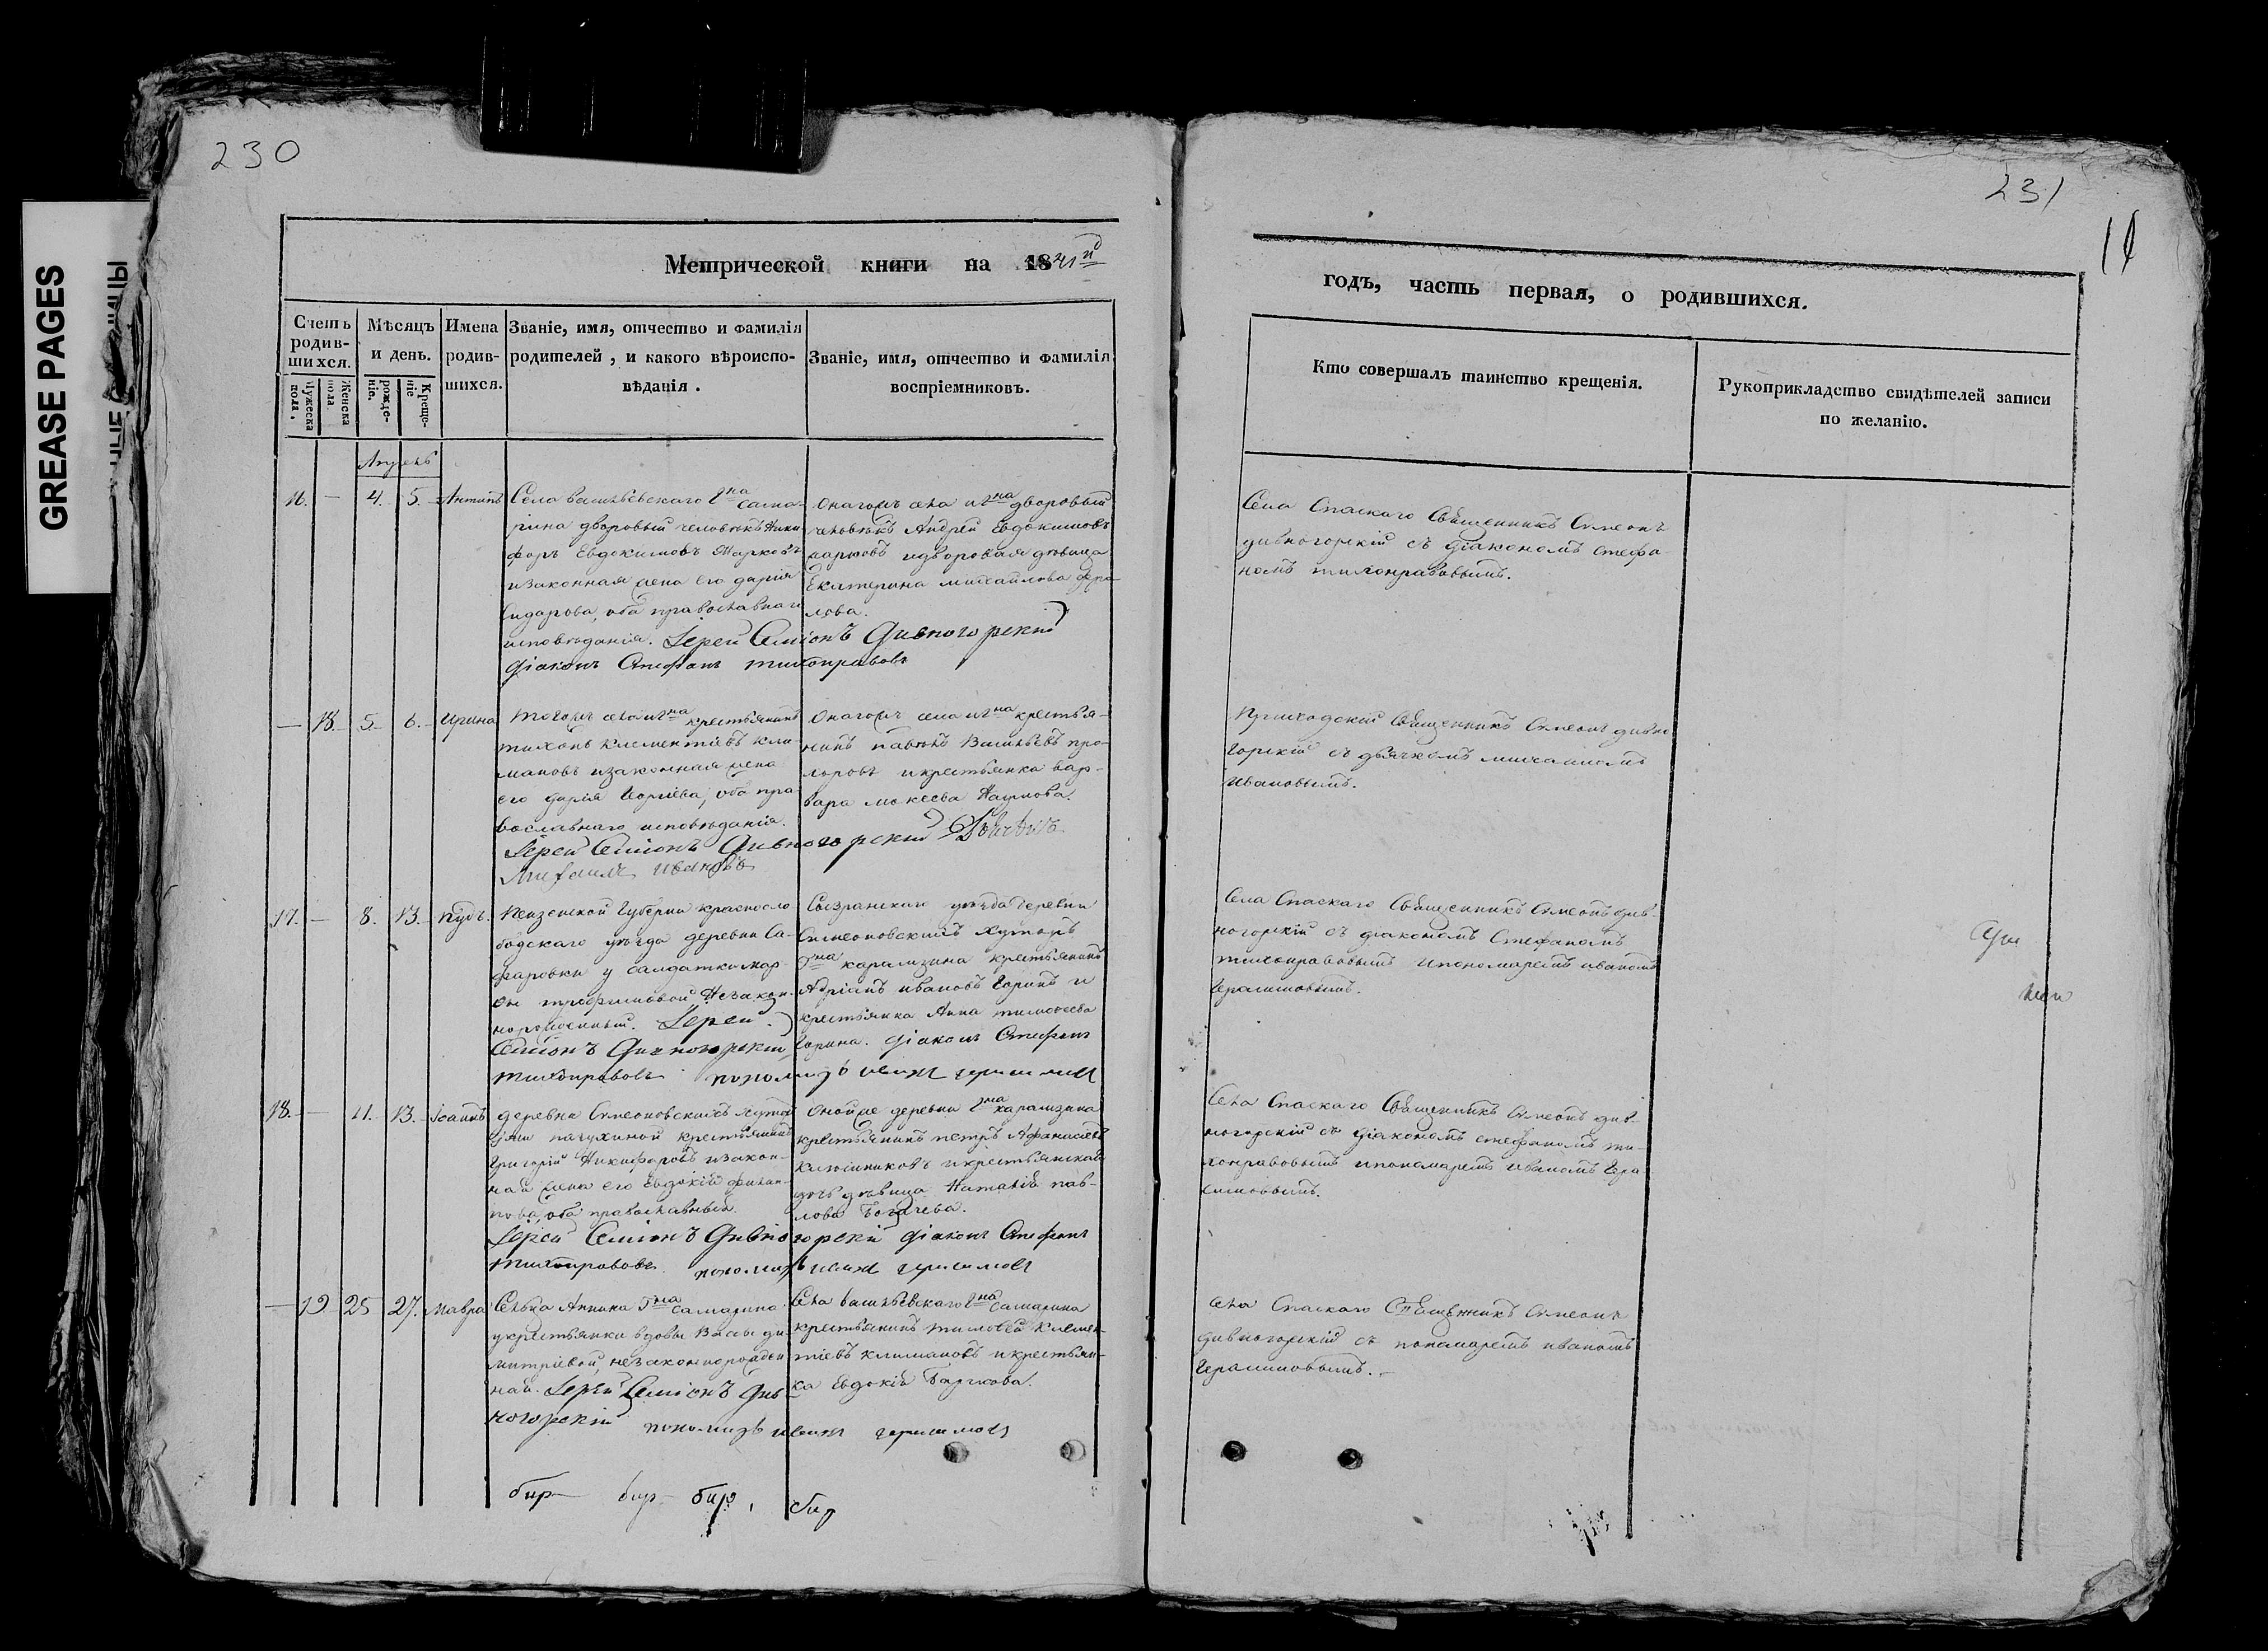 230
231
GREASE PAGES
Метрической книги на 1841й
годъ, часть первая, о родившихся.
Счетъ родив-шихся.
Мѣсяцъ и день.
Имена родив-шихся.
Званіе, имя, отчество и фамилія родителей, и какого вѣроиспо-вѣданія.
Званіе, имя, отчество и фамилія воспріемниковъ.
Мужеска пола.
Женска пола
рожде-ніе.
Креще-ніе
Кто совершалъ таинство крещенія.
Рукоприкладство свидѣтелей записи
по желанію.
Апрель
16. — 4. 5. Антипъ
Села васильевскаго Гна сама-
рина дворовый человѣкъ Ники-
форъ Евдокимовъ Марковъ
изаконная жена его дарія
Сидорова, оба православнаго
исповѣданія. Іерей Симіонъ Дивногорскій
Діаконъ Стефанъ тихонравовъ
Онагожъ села игна дворовый
человѣкъ Андрей Евдокимовъ
марковъ идворовая дѣвица
Екатерина михайлова фро-
лова.
Села Спаскаго Священникъ Симеонъ
дивногорскій съ діакономъ стефа-
номъ тихонравовымъ.
— 18. 5. 6. Ирина
Тогожъ села игна крестьянинъ
тихонъ Клементіевъ кли-
мановъ изаконная жена
его дарія Іоргіева, оба пра-
вославнаго исповѣданія.
Іерей Симіонъ Дивногорскій Дьячекъ
Михаилъ ивановъ
Онагожъ села игна крестья-
нинъ павелъ Васильевъ про-
хоровъ икрестьянка вар-
вара мокеева Наумова.
Приходскій Священникъ Симеонъ дивно
горскій съ дьячкомъ михаиломъ
ивановымъ.
17. — 8. 13. пудъ.
Пензенской Губерніи красносло-
бодскаго уѣзда деревни Са-
фаровки у салдатки мар-
ѳы трофимовой Незакон-
норожденный. Іерей
Симіонъ Дивногорскій,
тихонравовъ пономарь иванъ герасимовъ
Сызранскаго уѣзда деревни
Симеоновскихъ хуторъ
Гна карамзина крестьянинъ
Адріанъ ивановъ Горинъ и
крестьянка Анна тимоѳеева
Горина. Діаконъ Стефанъ
Села Спаскаго Священникъ Симеонъ див-
ногорскій съ діакономъ Стефаномъ
тихонравовымъ ипономаремъ иваномъ
Герасимовымъ.
18. — 11. 13. Іоаннъ
деревни Симеоновскихъ хутор
Гжи пачухиной крестьянинъ
Григорій Никифоровъ изакон-
ная жена его Евдокія филип-
пова, оба православныя.
Іерей Симіонъ Дивногорскій Діаконъ Стефанъ
тихонравовъ пономарь иванъ герасимовъ
Онойже деревни Гна карамзина
крестьянинъ петръ Афанасьевъ
Калашниковъ икрестьянская
дочь дѣвица Наталія пав-
лова Богачева.
Села Спаскаго Священникъ Симеонъ див-
ногорскій съ діакономъ стефаномъ ти-
хонравовымъ ипономаремъ иваномъ Гера-
симовымъ.
— 19 25 27. Мавра
Сельца Аннина Гна самарина
укрестьянки вдовы Васы ди-
митріевой, незаконнорожден
ная. Іерей Симіонъ Див-
ногорскій пономарь иванъ герасимовъ
Села васильевскаго Гна самарина
крестьянинъ тимоѳей клемен-
тіевъ климановъ икрестьян-
ка Евдокія Баркова.
Села Спаскаго Священникъ Симеонъ
дивногорскій съ пономаремъ иваномъ
Герасимовымъ.